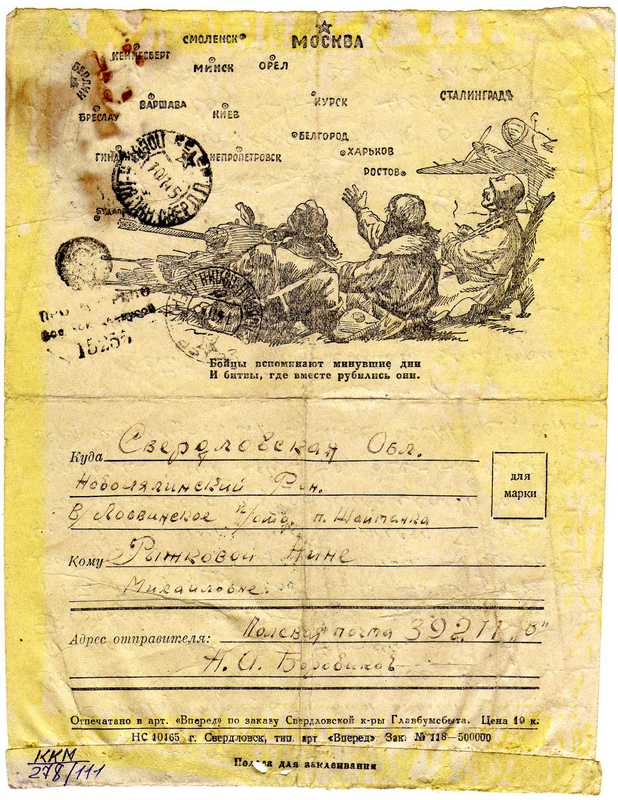 МОСКВА
СМОЛЕНСК
КЕНИГСБЕРГ
МИНСК
ОРЁЛ
БЕРЛИН
БРЕСЛАУ
ВАРШАВА
КИЕВ
КУРСК
СТАЛИНГРАД
БЕЛГОРОД
НЕПРОПЕТРОВСК
ХАРЬКОВ
РОСТОВ
15254
Бойцы вспоминают минувшие дни
И битвы, где вместе рубились они.
Куда Свердловская Обл.
Новолялинский Рон.
В Лобвинское п. Шайтанка
для
марки
Кому Рыжковой Нине
Михайловне
Адрес отправителя: Полевая почта 39211 „В"
Н. И. Боровиков
Отпечатано в арт. «Вперед» по заказу Свердловской к-ры Главбумсбыта. Цена 10 к.
НС 10165 г. Свердловск, тип. арт «Вперед» Зак. № 118—500000
Полоса для заклеивания
ККМ
278/111